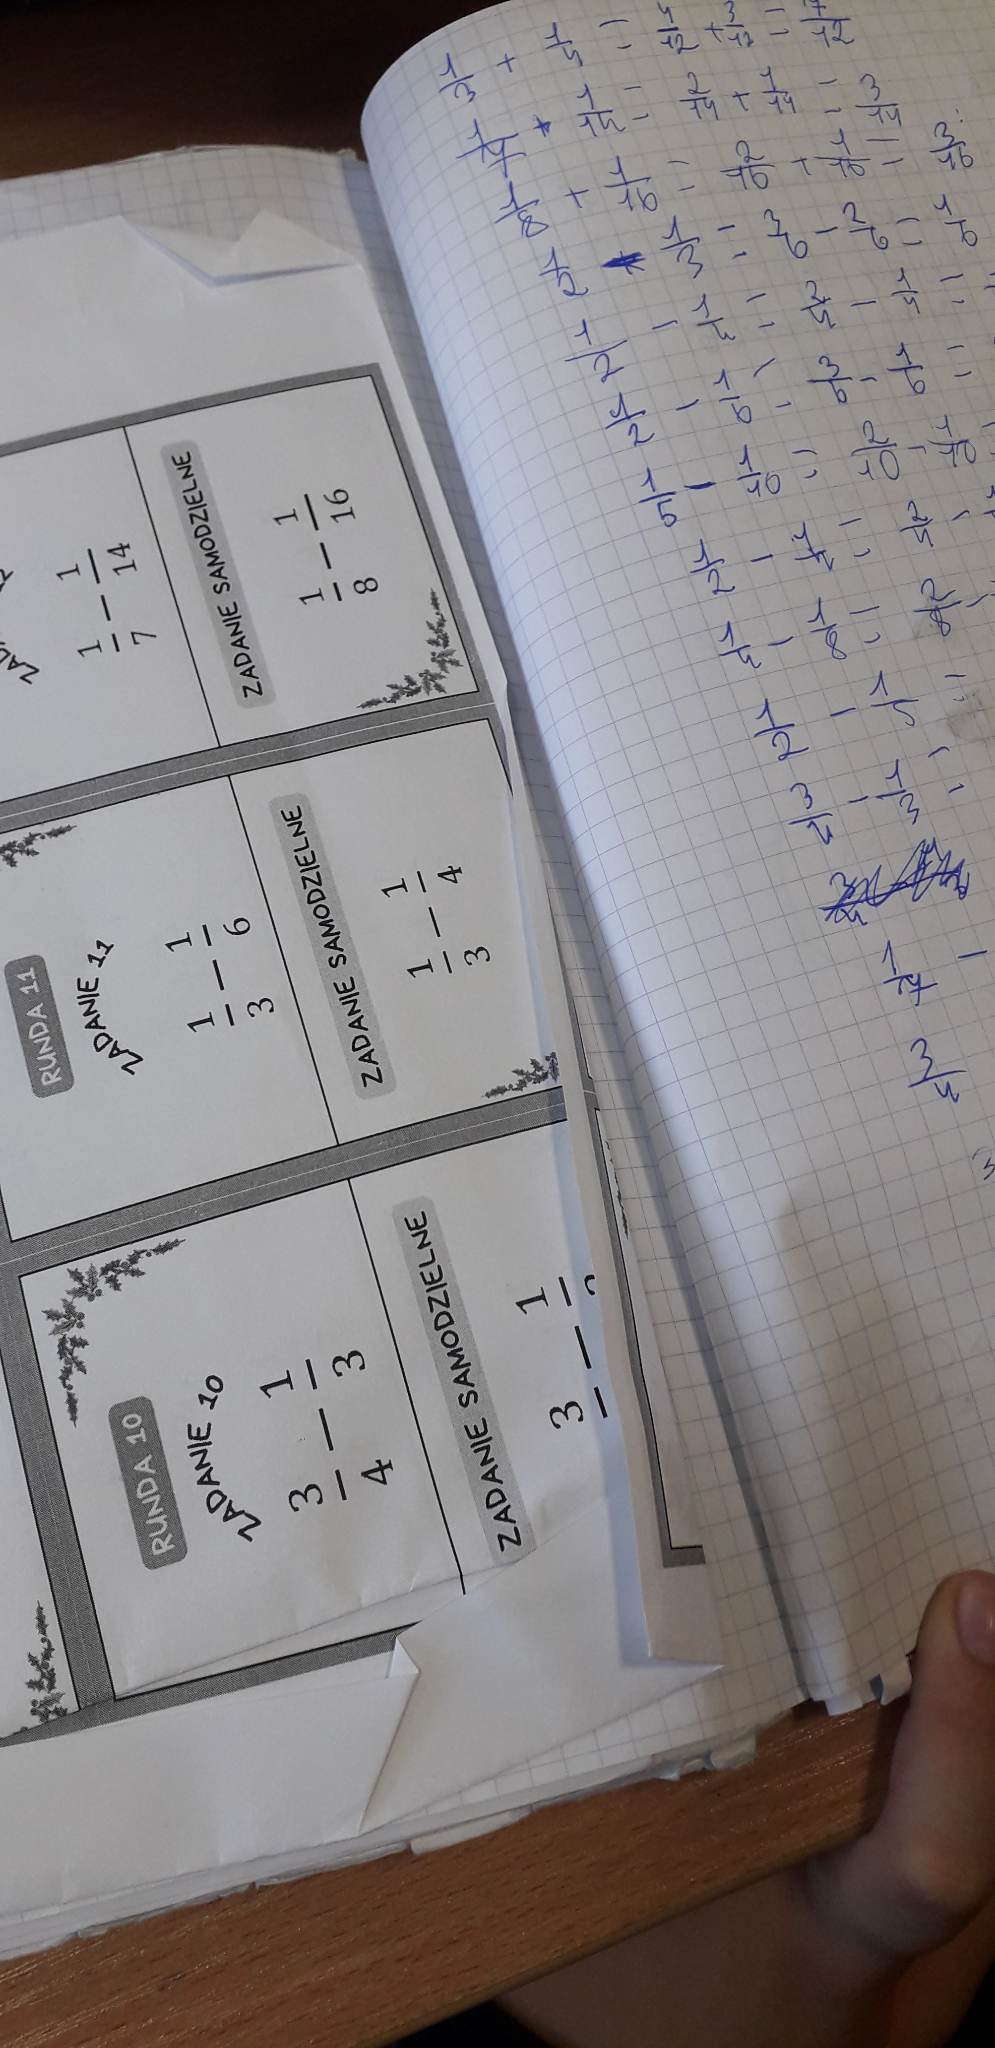 RUNDA 10
ZADANIE 10
3/4 - 1/3
ZADANIE SAMODZIELNE
3 - 1
RUNDA 11
ZADANIE 11
1/3 - 1/6
ZADANIE SAMODZIELNE
1/3 - 1/4
1/7 - 1/14
ZADANIE SAMODZIELNE
1/8 - 1/16
1/3 + 1/4 = 4/12 + 3/12 = 7/12
1/7 + 1/14 = 2/14 + 1/14 = 3/14
1/8 + 1/16 = 2/16 + 1/16 = 3/16
1/2 - 1/3 = 3/6 - 2/6 = 1/6
1/2 - 1/4 = 2/4 - 1/4 =
1/2 - 1/6 = 3/6 - 1/6 =
1/5 - 1/10 = 2/10 - 1/10
1/2 - 1/4 = 2/4 -
1/4 - 1/8 = 2/8 -
1/2 - 1/5 =
3/4 - 1/3 =
1/7 -
3/4
3